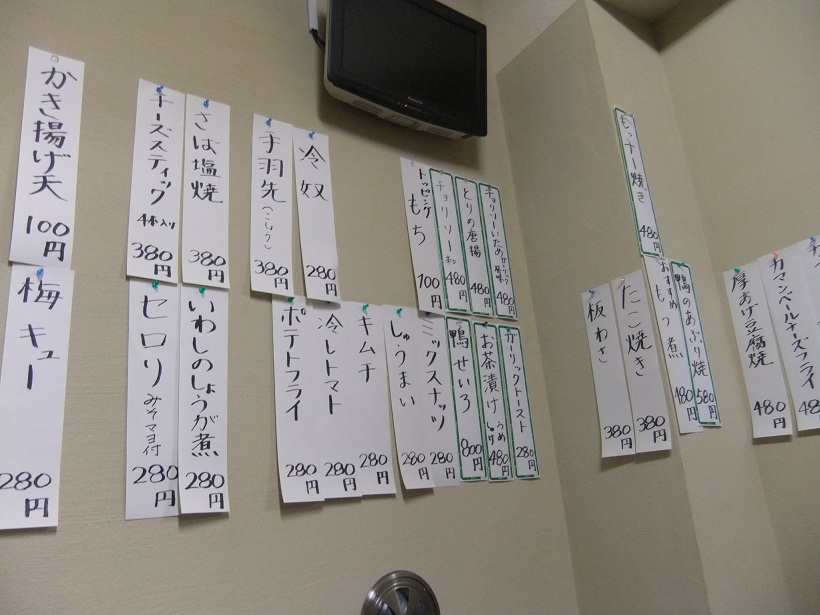 かき揚げ天 100円
梅キュー 280円
チーズスティック 4本入り 380円
さば塩焼 380円
セロリ みそマヨ付 280円
いわしのしょうが煮 280円
手羽先(こしょう) 380円
冷奴 280円
ポテトフライ 280円
冷しトマト 280円
キムチ 280円
トッピング もち 100円
チョリソー 480円
とりの唐揚 480円
チョリソーいため 480円
しゅうまい 280円
ミックスナッツ 280円
鴨せいろ 800円
お茶漬け うめ 480円
ガーリックトースト 280円
480円
板わさ 380円
たこ焼き 380円
おすすめ もつ煮 480円
鴨のあぶり焼 580円
厚あげ豆腐焼 480円
カマンベールチーズフライ
Panasonic